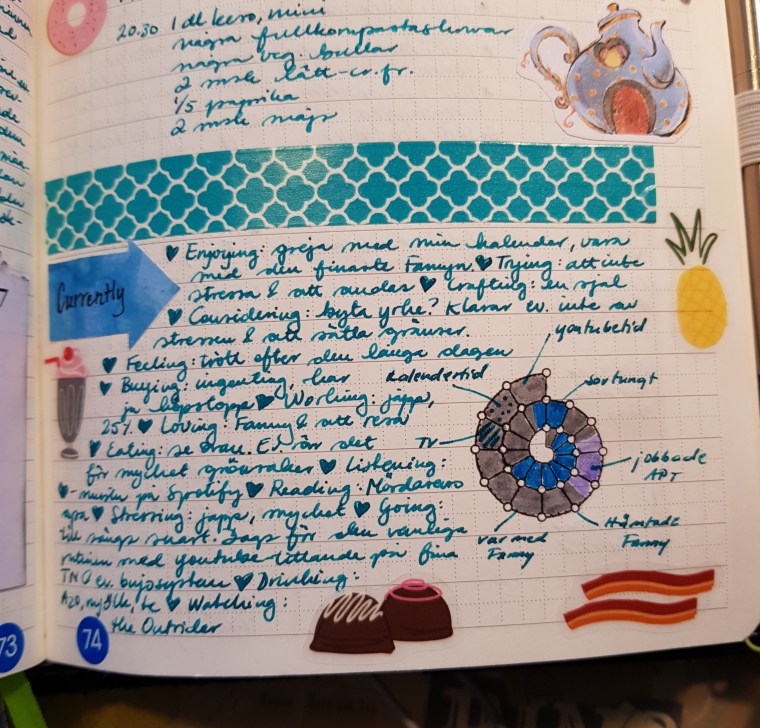 20.30 1 dl keso, mini
några fullkornpastaskruvar
några veg. bullar
2 msk lätt-cr.fr.
1/5 paprika
2 msk majs
Currently
♥ Enjoying: greja med min kalender, vara
med den finaste Fannyn. ♥ Trying: att inte
stressa & att andas ♥ Crafting: en sjal
♥ Considering: byta yrke? Klarar ev. inte av
stressen & att sätta gränser.
♥ Feeling: trött efter den långa dagen
♥ Buying: ingenting, har
ju köpstopp ♥ Working: japp,
25% ♥ Loving: Fanny & att resa
♥ Eating: se ovan. Ev. för det
för mycket grönsaker ♥ Listening:
♥-musik på Spotify ♥ Reading: Mördarens
apa ♥ Stressing: japp, mycket ♥ Going:
till sängs snart. Dags för den vanliga
rutinen med youtube-tittande på fina
TN & ev. bujosystem ♥ Drinking:
H2O, mjölk, te ♥ Watching:
the Outsider
youtubetid
kalendertid
sovtungt
TV
jobbade
APT
Hämtade
Fanny
var med
Fanny
73
74